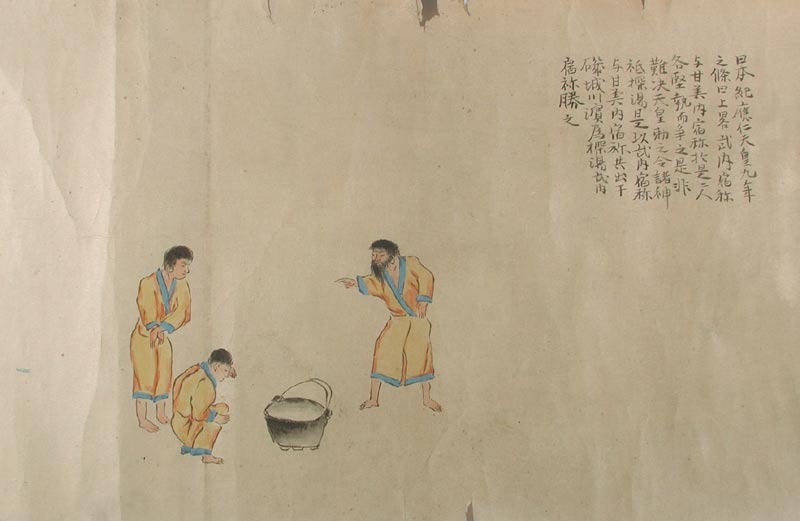 日本紀應仁天皇九年
之條曰上畧武内宿祢
与甘美内宿祢於是二人
各堅執而争之是非
難决天皇勅之令請神
祇探湯是以武内宿祢
与甘美内宿祢共出于
磯城川濱為探湯武内
宿祢勝之